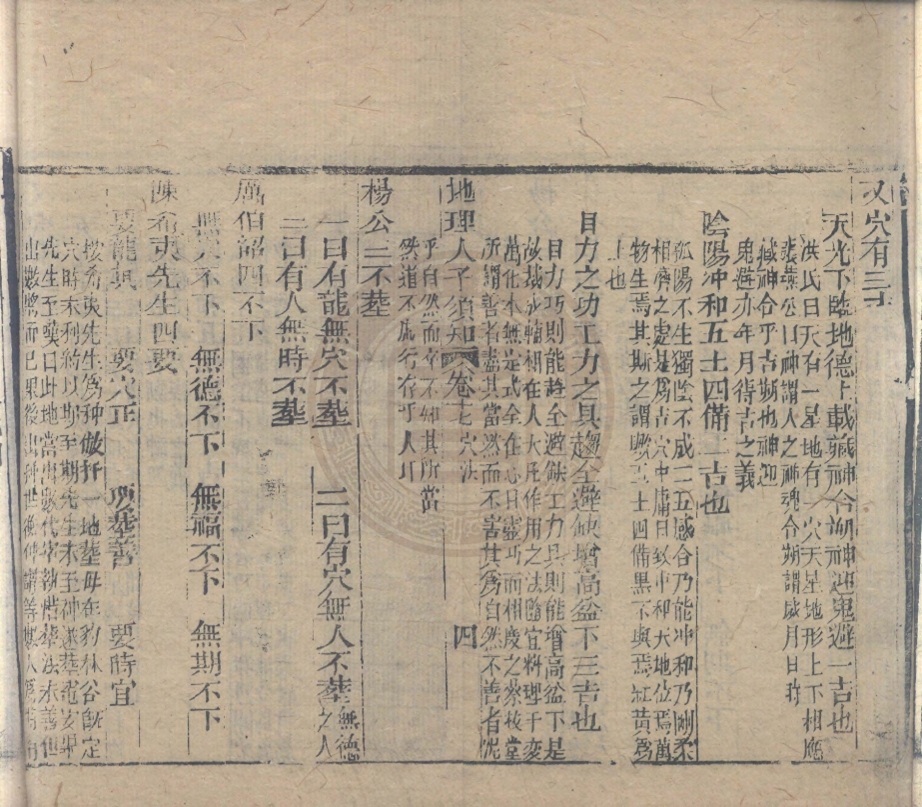 又穴有三吉
天光下臨地德上載藏神合朔神迎鬼避一吉也
洪氏曰天有一星地有一穴天星地形上下相應
裴公曰神謂人之神魂合朔謂歲月日時
藏神合乎吉朔也神迎
鬼避亦年月待吉之義
陰陽冲和五土四備二吉也
孤陽不生獨陰不成二五感合乃能冲和乃剛柔
相濟之處是爲吉穴中庸曰致中和天地位焉萬
物生焉其斯之謂歟五土四備黑不與焉紅黄爲
上也
目力之功工力之具趨全避缺增高益下三吉也
目力巧則能趨全避缺工力具則能增高益下是
故裁成輔相在人大凡作用之法隨宜料理千變
萬化本無定式全在心目靈巧而相度之察故堂
所謂善者盡其當然而不害其爲自然不善者泥
乎自然而卒不知其所當
然道不虛行存乎人耳
地理人子須知 卷七 穴法 四
楊公三不葬
一曰有龍無穴不葬 二曰有穴無人不葬無德之人
三曰有人無時不葬
厲伯韶四不下
無穴不下 無德不下 無福不下 無期不下
陳希夷先生四要
要龍眞 要穴正 要葬善 要時宜
按希夷先生爲种放扦一地葬母在豹林谷既定
穴時未利約以期至期先生未至种遂葬旣安
先生至歎曰此地當出數代宰執惜葬法未善但
出數將而已果後出种世衡种諤等